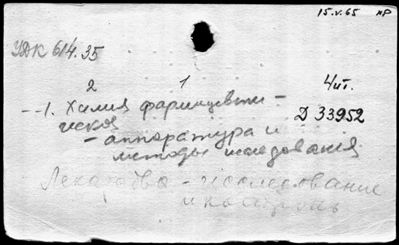 15.V.65 нр
УДК 614.35
2 1 4ит.
--1. Химия фармацевти-
ческая Д 33952
- аппаратура и
методы исследования
Лекарства - исследование
и контроль